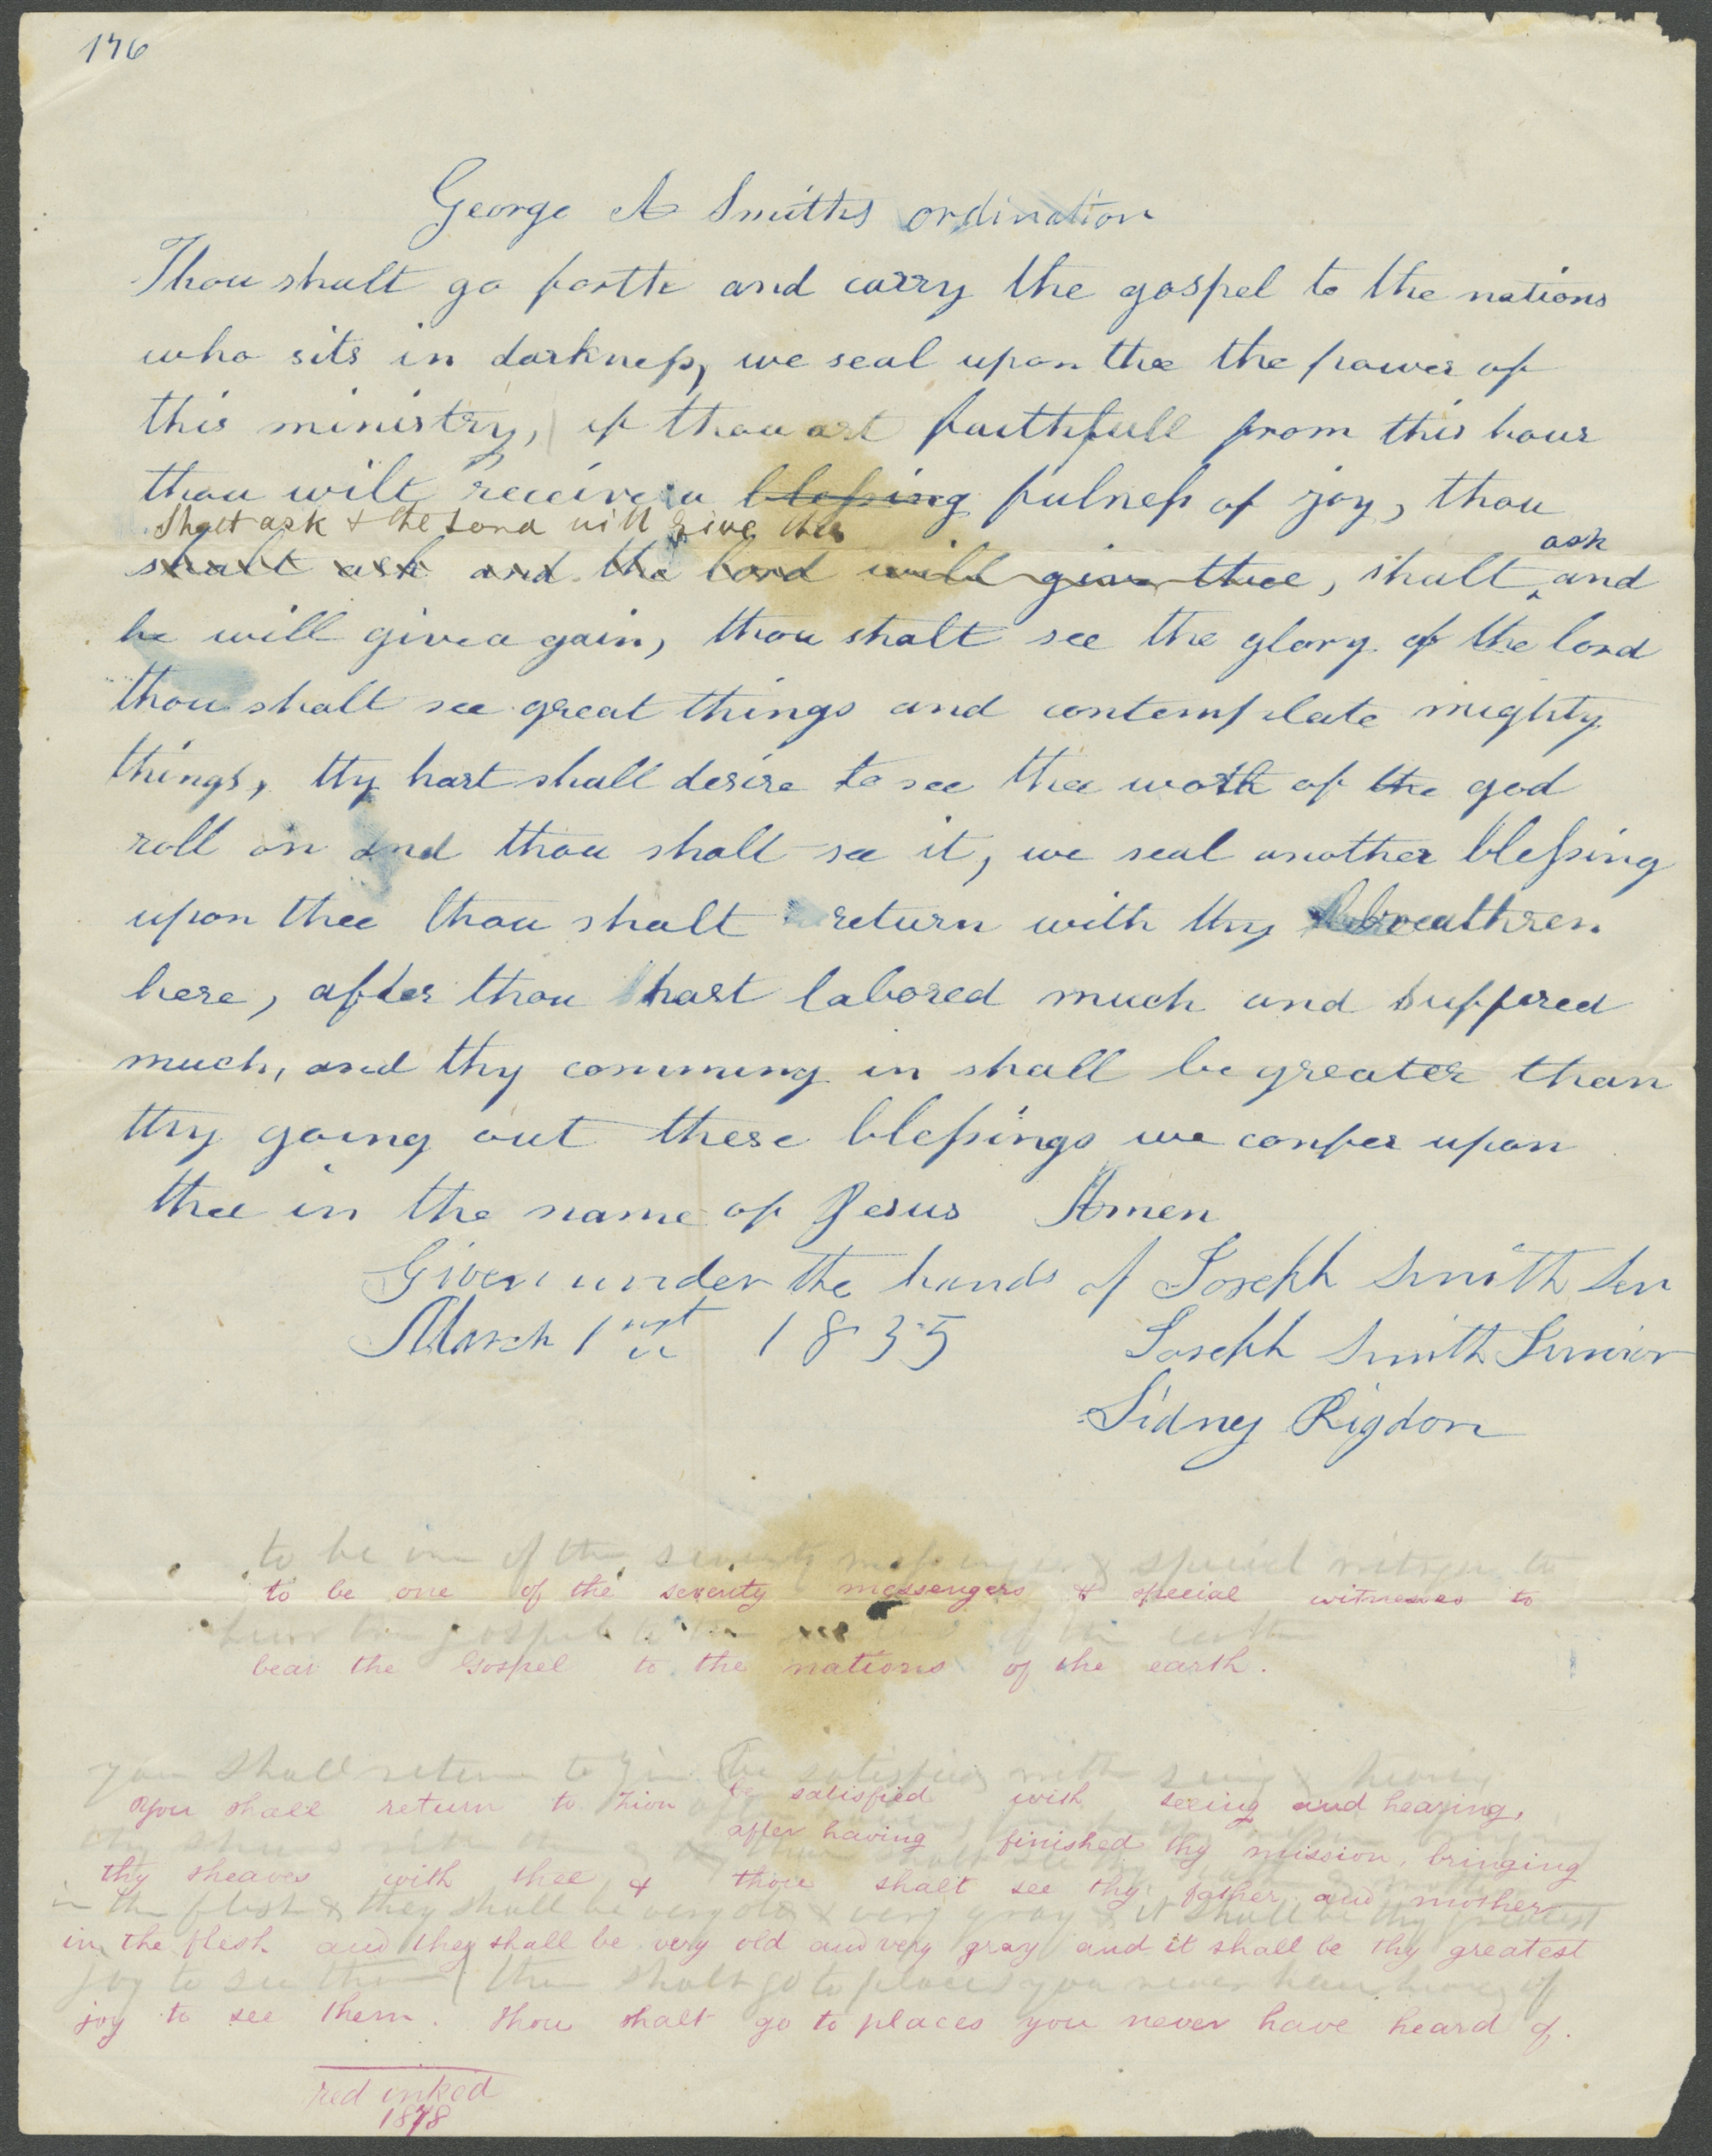 176
George A Smiths ordination
Thou shalt go forth and carry the gospel to the nations
who sits in darkness, we seal upon thee the power of
this ministry, if thou art faithfull from this hour
thou wilt receive a blessing fulness of joy, thou
Shalt ask & the Lord will give thee
shalt ask and the lord will give thee, shalt ask and
he will give again, thou shalt see the glory of the lord
thou shalt see great things and contemplate mighty
things, thy hart shall desire to see thee work of the god
roll on and thou shalt see it, we seal another blessing
upon thee thou shalt return with thy breathren
here, after thou hast labored much and suffered
much, and thy comming in shall be greater than
thy going out these blessings we confer upon
thee in the name of Jesus Amen
Given under the hands of Joseph Smith Sen
March 1st 1835 Joseph Smith Junior
Sidney Rigdon
to be one of the seventy messengers & special witness to
to be one of the seventy messengers & special witnesses to
bear the gospel to the of the earth
bear the Gospel to the nations of the earth.
you shall return to Zion be satisfied with seing & hearing
You shall return to Zion be satisfied with seeing and hearing,
after having finished thy mission, bringing
thy sheaves with thee & thou shalt see thy father and mother
in the flesh & they shall be very old & very gray & it shall be thy greatest
in the flesh and they shall be very old and very gray and it shall be thy greatest
joy to see them thou shalt go to places you never have heard of
joy to see them. Thou shalt go to places you never have heard of.
red inked
1878